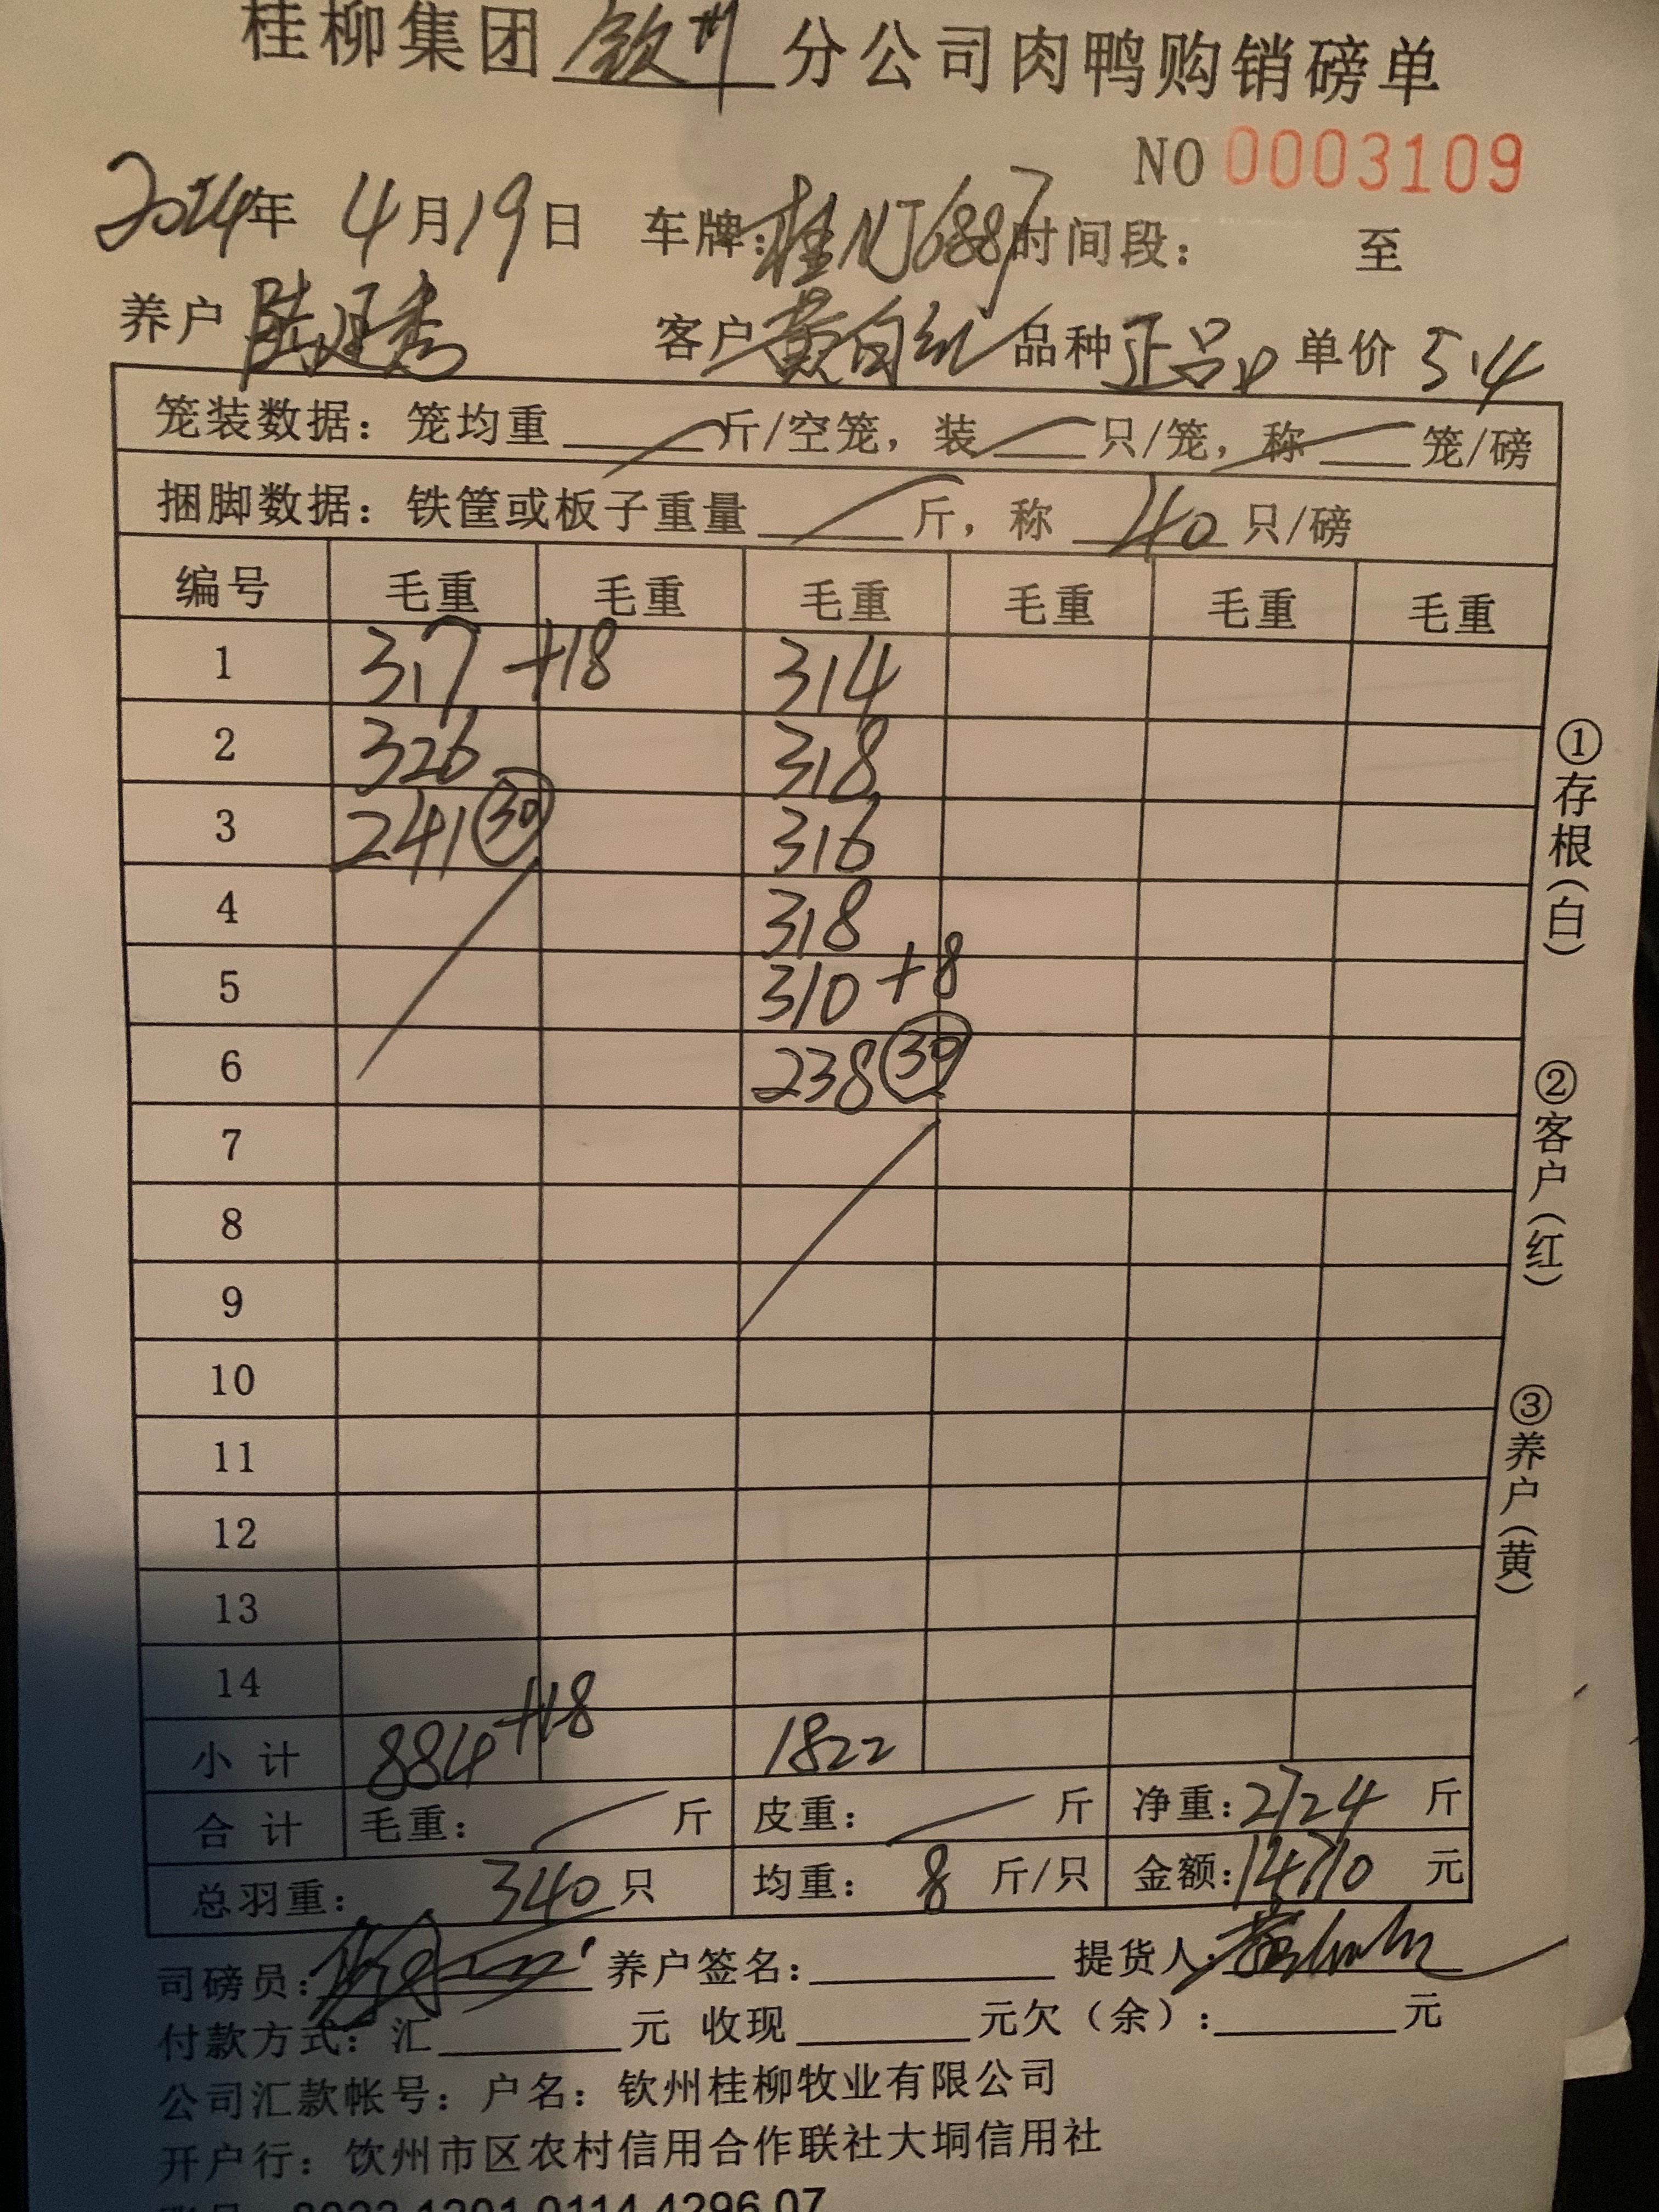 桂柳集团 钦州 分公司肉鸭购销磅单
NO 0003109
2024年 4月19日 车牌:桂NJ6887 时间段: 至
养户 陆 秀 客户 黄 红 品种 正品 单价 5.4
笼装数据: 笼均重 斤/空笼, 装 只/笼, 称 笼/磅
捆脚数据: 铁筐或板子重量 斤, 称 40 只/磅
编号 毛重 毛重 毛重 毛重 毛重 毛重
1 317 +18 314
2 326 318
3 241 ㉚ 316
4 318
5 310 +8
6 238 ㉚
7
8
9
10
11
12
13
14
小计 884 +18 1822
合计 毛重: 斤 皮重: 斤 净重: 2724 斤
总羽重: 340 只 均重: 8 斤/只 金额: 14710 元
①存根(白)
②客户(红)
③养户(黄)
司磅员: 养户签名: 提货人:
付款方式: 汇 元 收现 元欠(余): 元
公司汇款帐号: 户名: 钦州桂柳牧业有限公司
开户行: 钦州市区农村信用合作联社大垌信用社